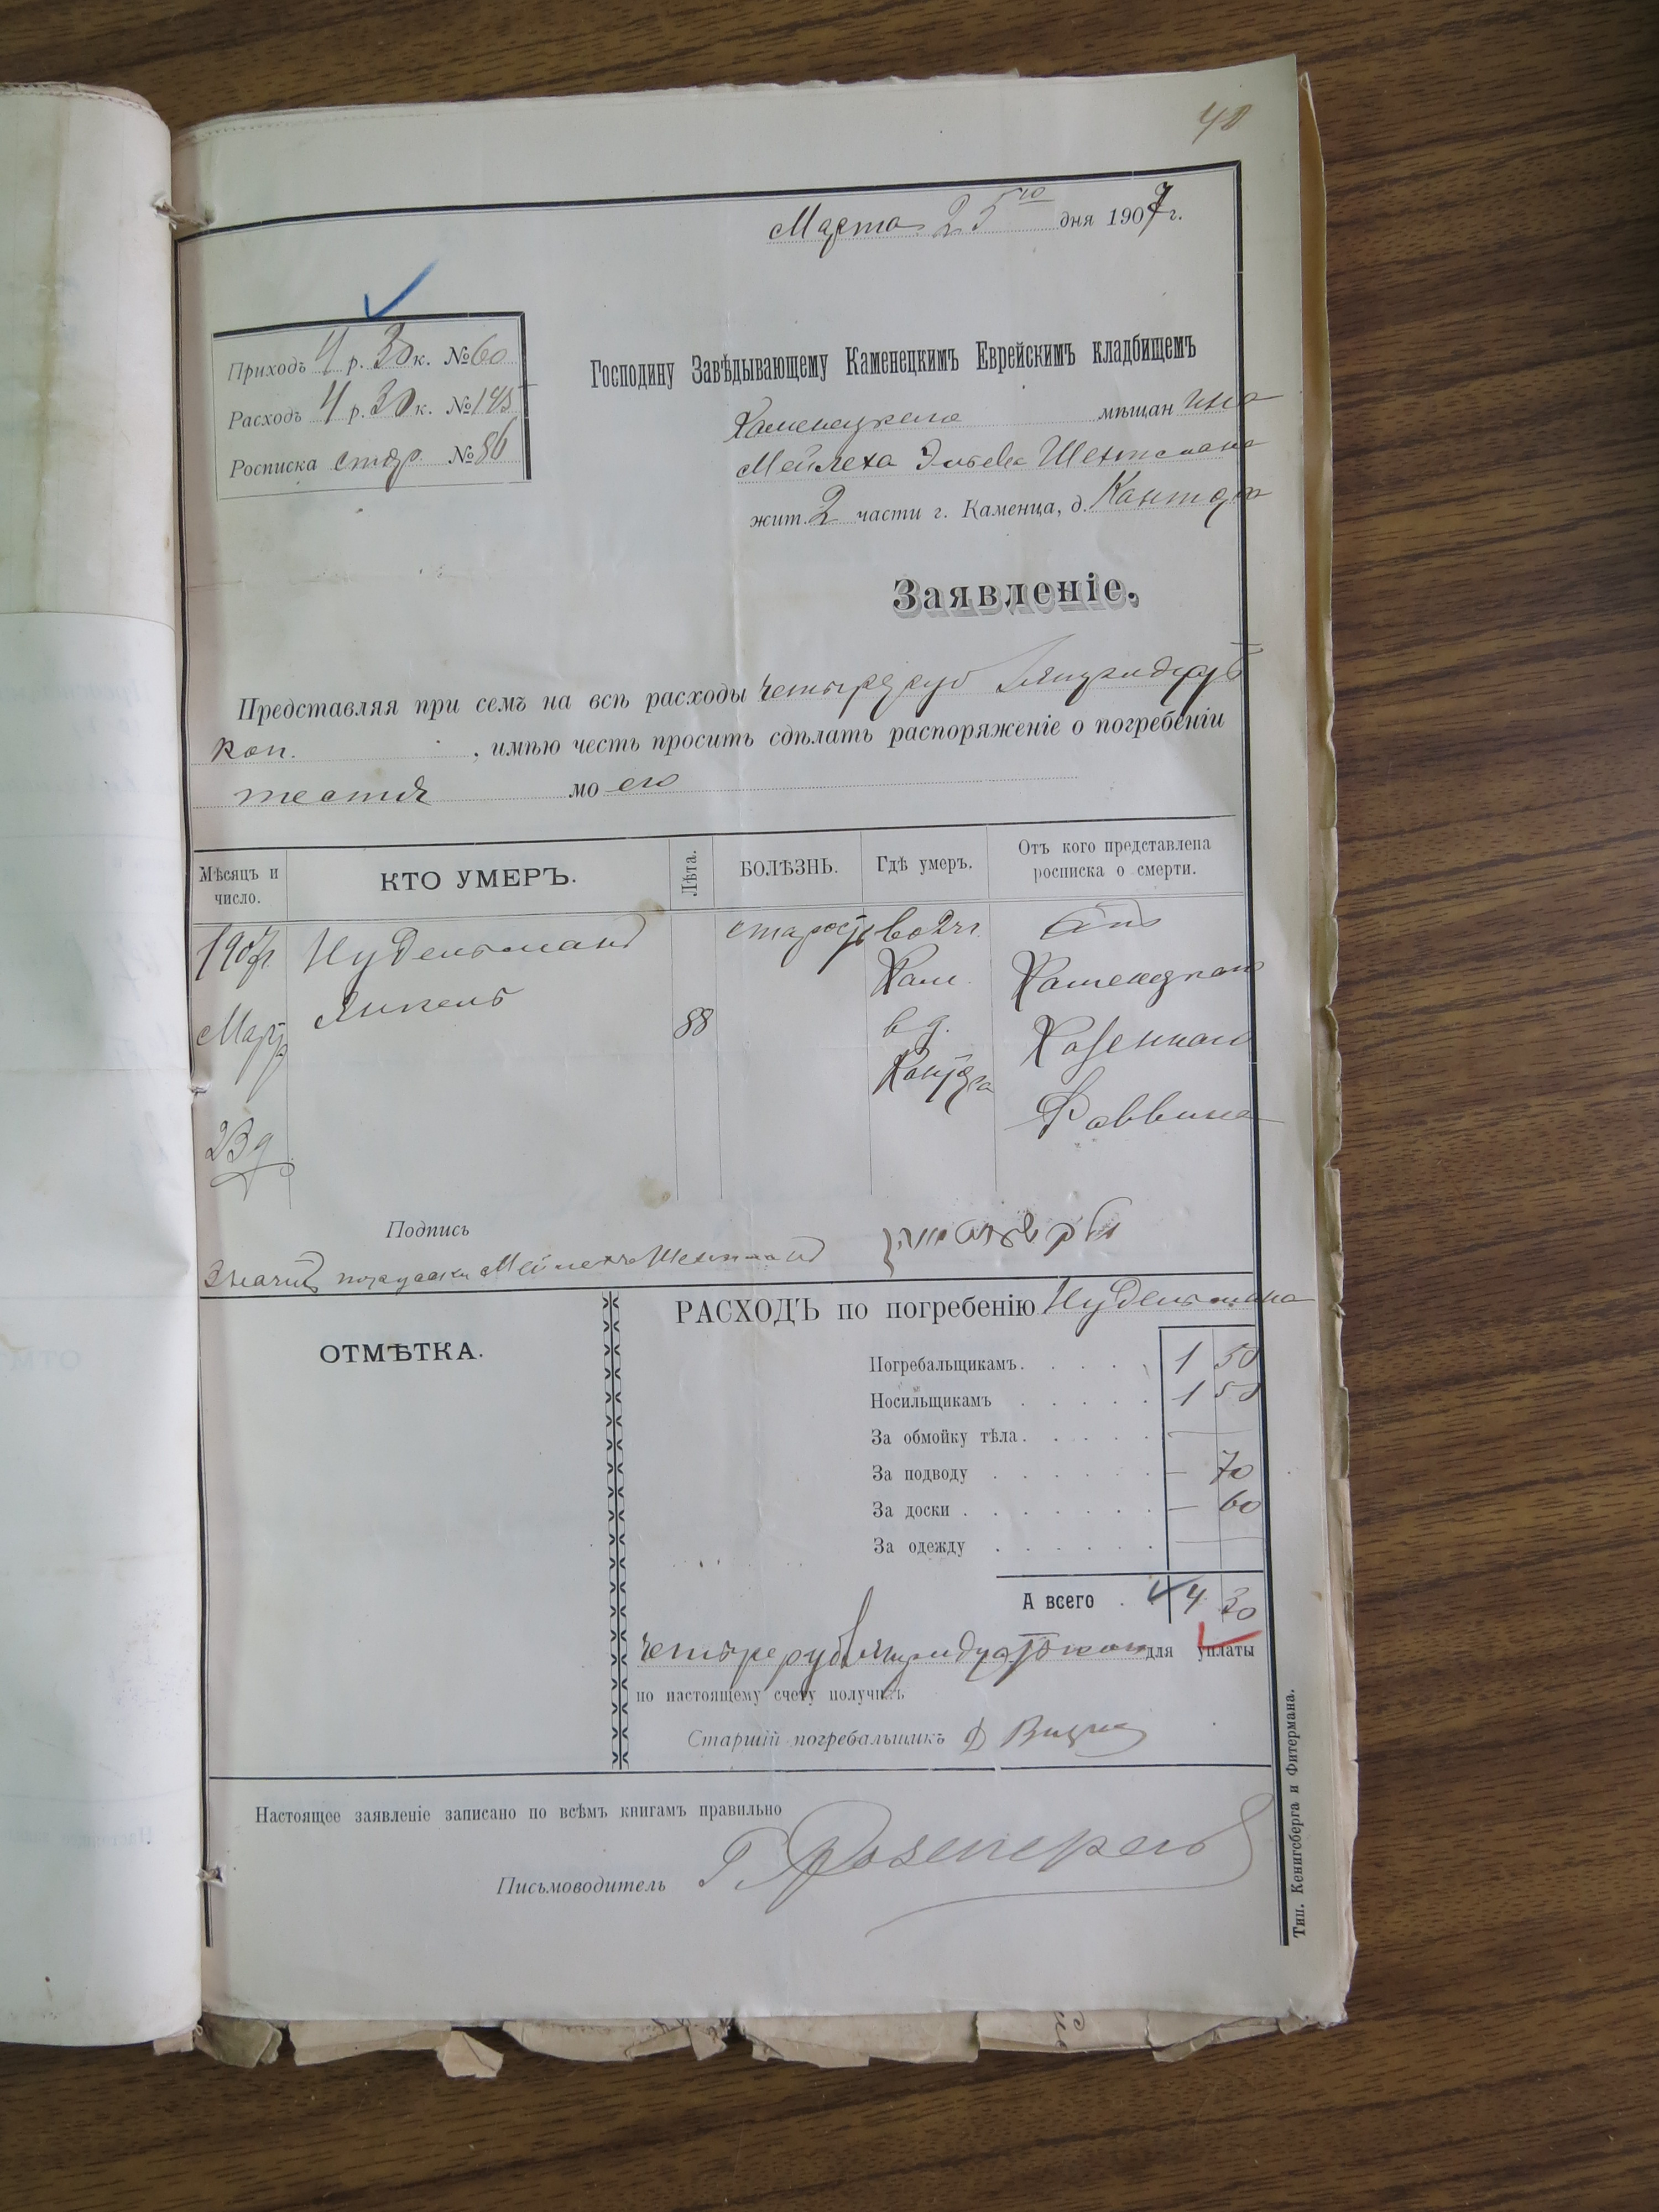 40
Марта 25го дня 1907 г.
Приходъ 4 р. 30 к. № 60
Расходъ 4 р. 30 к. № 145
Росписка стар. № 86
Господину Завѣдывающему Каменецкимъ Еврейскимъ кладбищемъ
Каменецкаго мѣщанина
Мейлеха
жит. 2 части г. Каменца, д. Кантора
Заявленіе.
Представляя при семъ на всѣ расходы четыре руб тридцать
коп. , имѣю честь просить сдѣлать распоряженіе о погребеніи
тестя моего
Мѣсяцъ и число.
КТО УМЕРЪ.
Лѣта.
БОЛѢЗНЬ.
Гдѣ умеръ.
Отъ кого представлена росписка о смерти.
1907 г.
Март
23 д
Нудельманъ
Янкель
88
старость
во 2 ч.
Кам.
в д.
Кантора
Отъ
Каменецкаго
Казеннаго
Раввина
Подпись
Значитъ Мейлехъ
РАСХОДЪ по погребенію Нудельмана
ОТМѢТКА.
Погребальщикамъ. 1 50
Носильщикамъ 1 50
За обмойку тѣла. —
За подводу — 70
За доски — 60
За одежду —
А всего 4 30
четыре руб тридцать коп для уплаты
по настоящему счету получилъ
Старшій погребальщикъ
Настоящее заявленіе записано по всѣмъ книгамъ правильно
Письмоводитель
Тип. Кенигсберга и Фитермана.